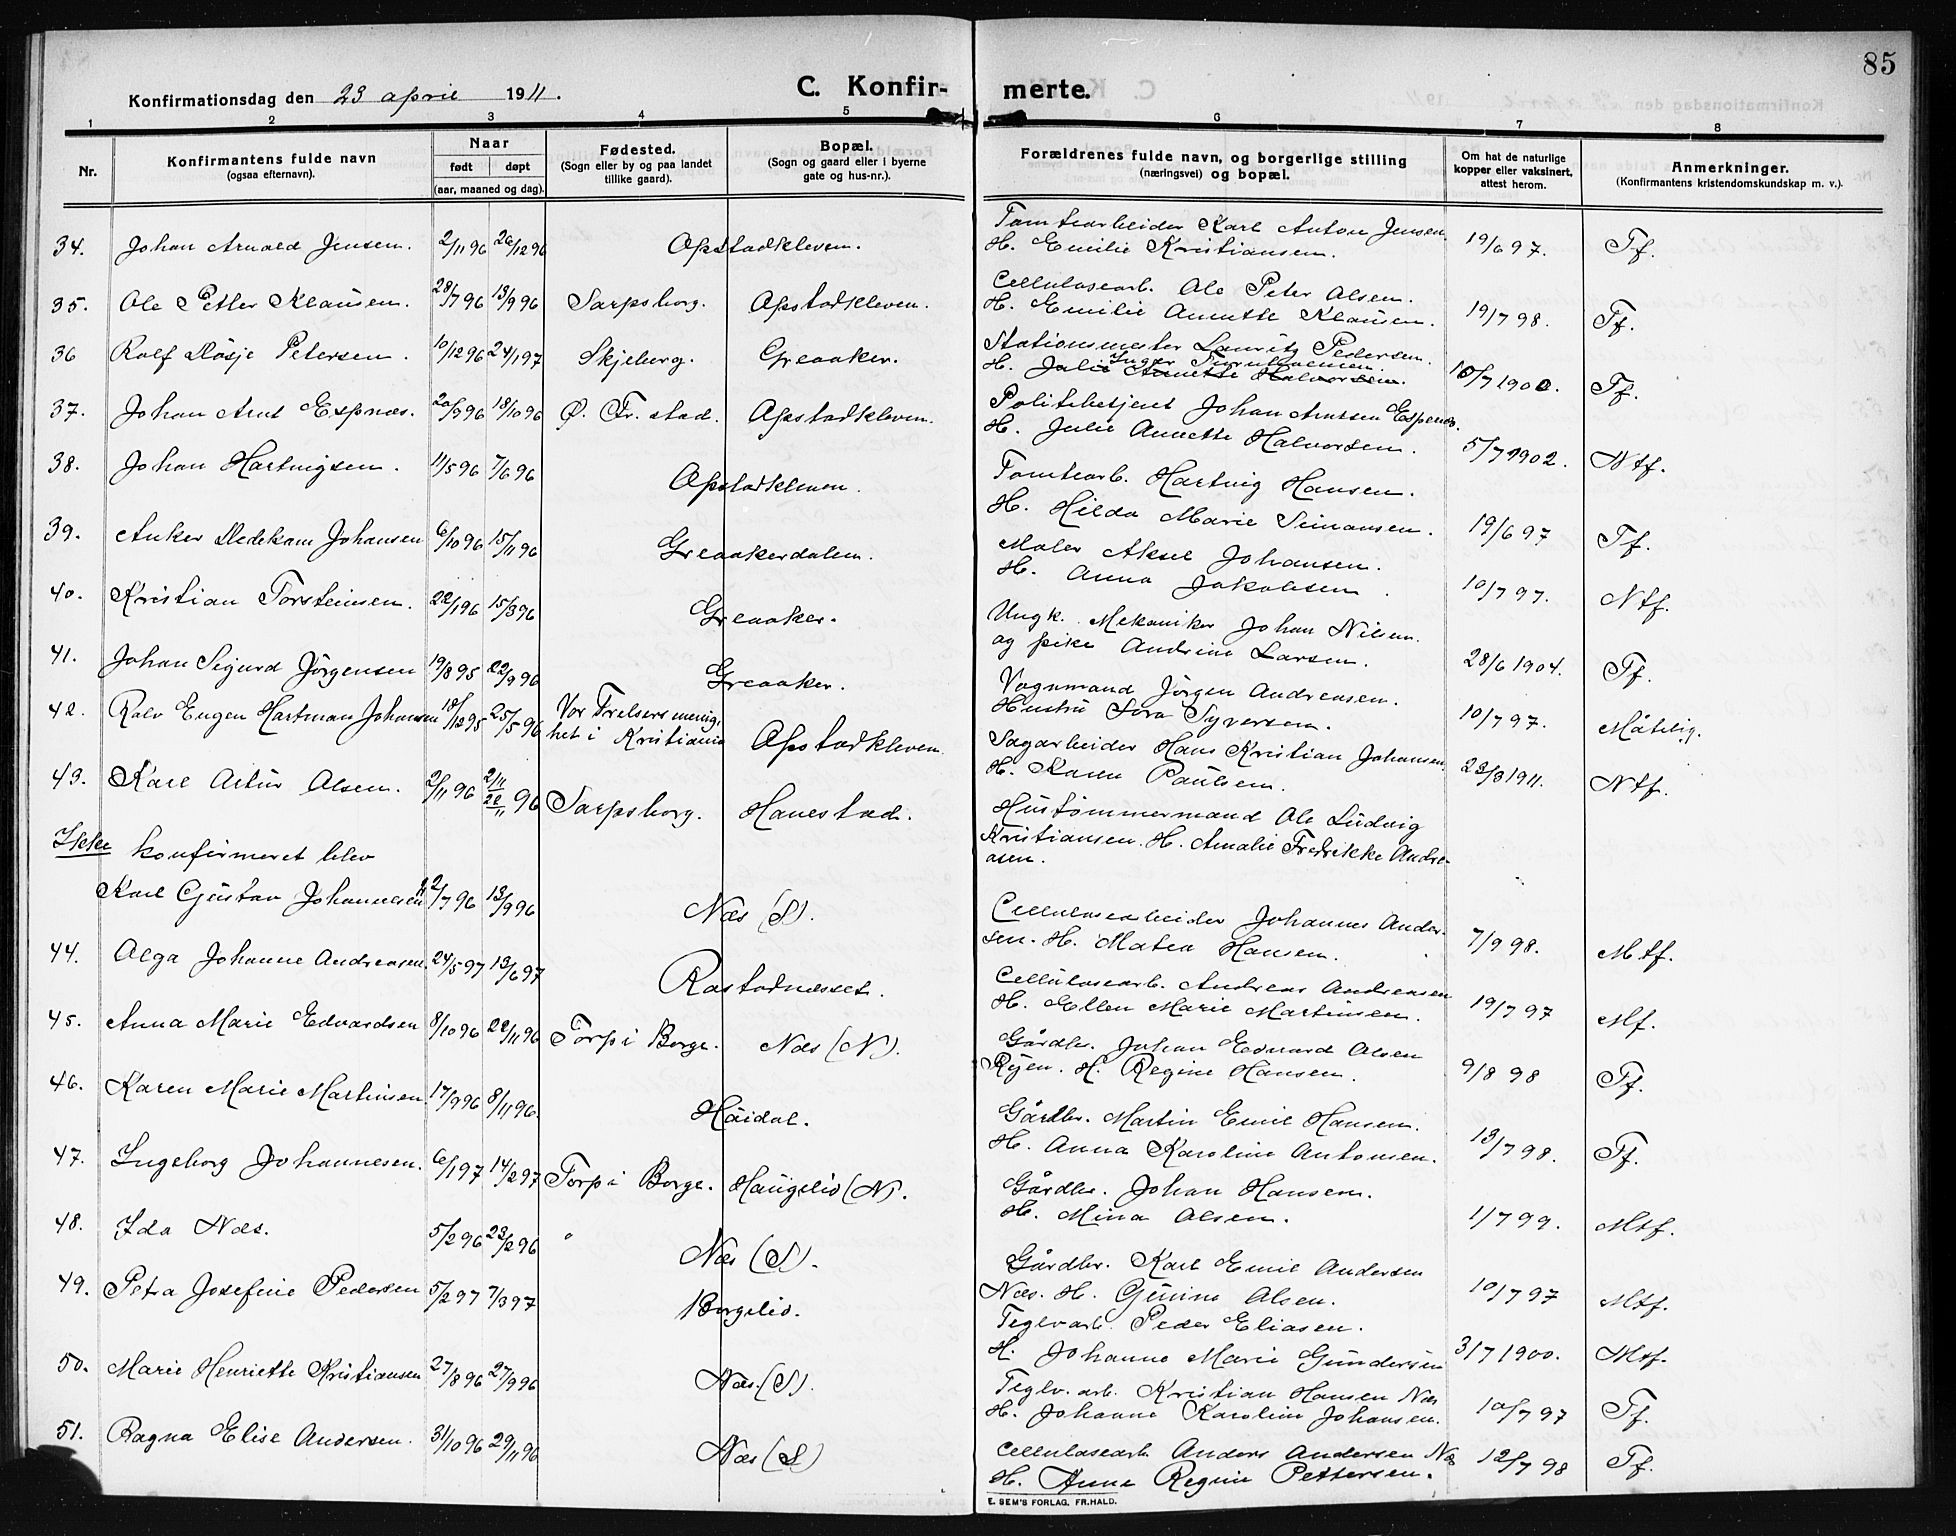 85
Konfirmationsdag den 23 april 1911.
C. Konfir- merte.
1 2 3 4 5 6 7 8
Nr.
Konfirmantens fulde navn
(ogsaa efternavn).
Naar
født døpt
(aar, maaned og dag).
Fødested.
(Sogn eller by og paa landet
tillike gaard).
Bopæl.
(Sogn og gaard eller i byerne
gate og hus-nr.).
Forældrenes fulde navn, og borgerlige stilling
(næringsvei) og bopæl.
Om hat de naturlige
kopper eller vaksinert,
attest herom.
Anmerkninger.
(Konfirmantens kristendomskundskap m. v.).
34. Johan Arnold Jensen. 2/11 96 26/12 96 Opstadkleven.
Tomtearbeider Karl Anton Jensen
H. Emilie Kristiansen. 19/6 97. Tf.
35. Ole Petter Klausen. 28/7 96 13/9 96 Sarpsborg. Opstadkleven.
Cellulosearb. Ole Peter Olsen.
H. Emilie Annette Klausen. 19/7 98. Tf.
36 Rolf Petersen. 10/12 96 24/1 97 Skjeberg. Greaaker.
Stationsmester Lauritz Pedersen.
H. Julie Annette Halvorsen. 10/7 1900. Tf.
37. Johan Arnt Espnæs. 20/9 96 18/10 96 Ø. Fr.stad. Opstadkleven.
Politibetjent Johan Arntsen Espenæs.
H. Julie Annette Halvorsen. 5/7 1902. Ntf.
38. Johan Hartvigsen. 11/5 96 7/6 96 Opstadkleven.
Tomtearb. Hartvig Hansen.
H. Hilda Marie Simonsen. 19/6 97 Tf.
39. Anker Dedekam Johansen 6/10 96 15/11 96 Greaakerdalen.
Maler Aksel Johansen.
H. Anna Jakobsen. 10/7 97. Ntf.
40. Kristian Torsteinsen. 22/1 96 15/3 96 Greaaker.
Ungk. Mekaniker Johan Nilsen.
og pike Andrine Larsen. 28/6 1904. Tf.
41. Johan Sigurd Jörgensen 19/8 95 22/9 96 Greaaker.
Vognmand Jörgen Andreasen.
Hustru Lova Syversen. 10/7 97. Måtelig.
42. Rolv Eugen Hartman Johansen 18/12 95 25/5 96 Vor Frelsers menig-
het i Kristiania Opstadkleven
Sagarbeider Hans Kristian Johansen
H. Karen Paulsen. 23/3 1911. Ntf.
43. Karl Artur Olsen. 2/11 96 2/11 22/11 96 Sarpsborg. Hanestad.
Hustømmermand Ole Ludvig
Kristiansen. H. Amalie Fredrikke Andre-
asen.
Ikke konfirmeret blev
Karl Gustav Johannesen 22/7 96 13/9 96 Næs (S).
Cellulosearbeider Johannes Ander-
sen. H. Matea Hansen. 7/9 98. Mtf.
44. Olga Johanne Andreasen. 24/5 97 13/6 97 Rostadnæsset.
Cellulosearb. Andreas Andreasen
H. Ellen Marie Martinsen. 19/7 97 Mf.
45. Anna Marie Edvardsen 8/10 96 22/11 96 Torp i Borge. Næs (N).
Gårdbr. Johan Edvard Olsen
Ryen. H. Regine Hansen. 9/8 98 Tf.
46. Karen Marie Martinsen. 17/9 96 8/11 96. Häidal.
Gårdbr. Martin Emil Hansen.
H. Anna Karoline Antonsen. 13/7 98. Tf.
47. Ingeborg Johannesen. 6/1 97 14/2 97 Torp i Borge. Haugelid (N).
Gårdbr. Johan Hansen.
H. Mina Olsen. 1/7 99. Mtf.
48. Ida Næs. 5/2 96 23/2 96 Næs (S).
Gårdbr. Karl Emil Andersen
Næs. H. Gunine Olsen. 10/7 97 Mtf.
49. Petra Josefine Pedersen 5/2 97 7/3 97 Borgelid.
Teglvarb. Peder Eliasen.
H. Johanne Marie Gundersen 3/7 1900. Mtf.
50. Marie Henriette Kristiansen 27/8 96 27/9 96 Næs. (S).
Teglv. arb. Kristian Hansen Næs
H. Johanne Karoline Johansen. 10/7 97 Tf.
51. Ragna Elise Andersen. 31/10 96 29/11 96 Næs (S)
Cellulosearb. Anders Andersen Næs
H. Anna Regine Pettersen. 12/7 98 Tf.
E. SEM'S FORLAG, FR.HALD.